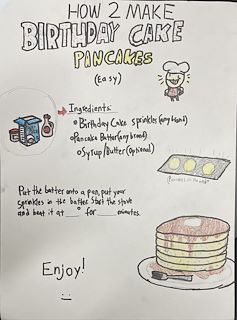 HOW 2 MAKE
BIRTHDAY CAKE
PANCAKES
(Easy)
Ingredients:
Birthday Cake sprinkles (any brand)
Pancake Batter (any brand)
Syrup/Butter (Optional)
Put the batter onto a pan, put your
sprinkles in the batter. Start the stove
and heat it at ___ for ___ minutes.
Enjoy!
:)